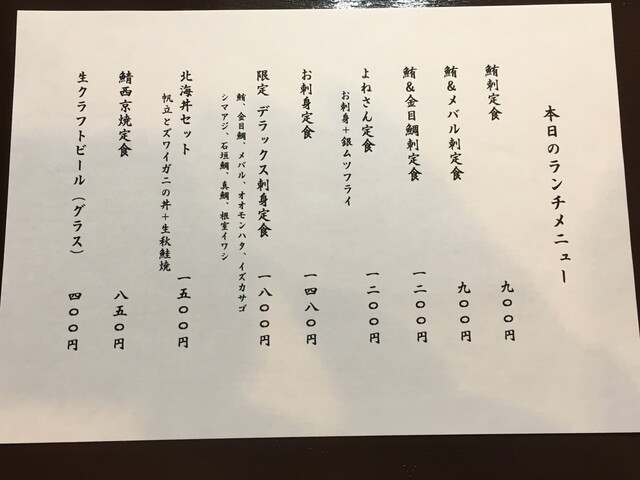 本日のランチメニュー
鮪刺定食 九〇〇円
鮪&メバル刺定食 九〇〇円
鮪&金目鯛刺定食 一二〇〇円
よねさん定食 一二〇〇円
お刺身+銀ムツフライ
お刺身定食 一四八〇円
限定 デラックス刺身定食 一八〇〇円
鮪、金目鯛、メバル、オオモンハタ、イズカサゴ
シマアジ、石垣鯛、真鯛、根室イワシ
北海丼セット 一五〇〇円
帆立とズワイガニの丼+生秋鮭焼
鯖西京焼定食 八五〇円
生クラフトビール（グラス） 四〇〇円